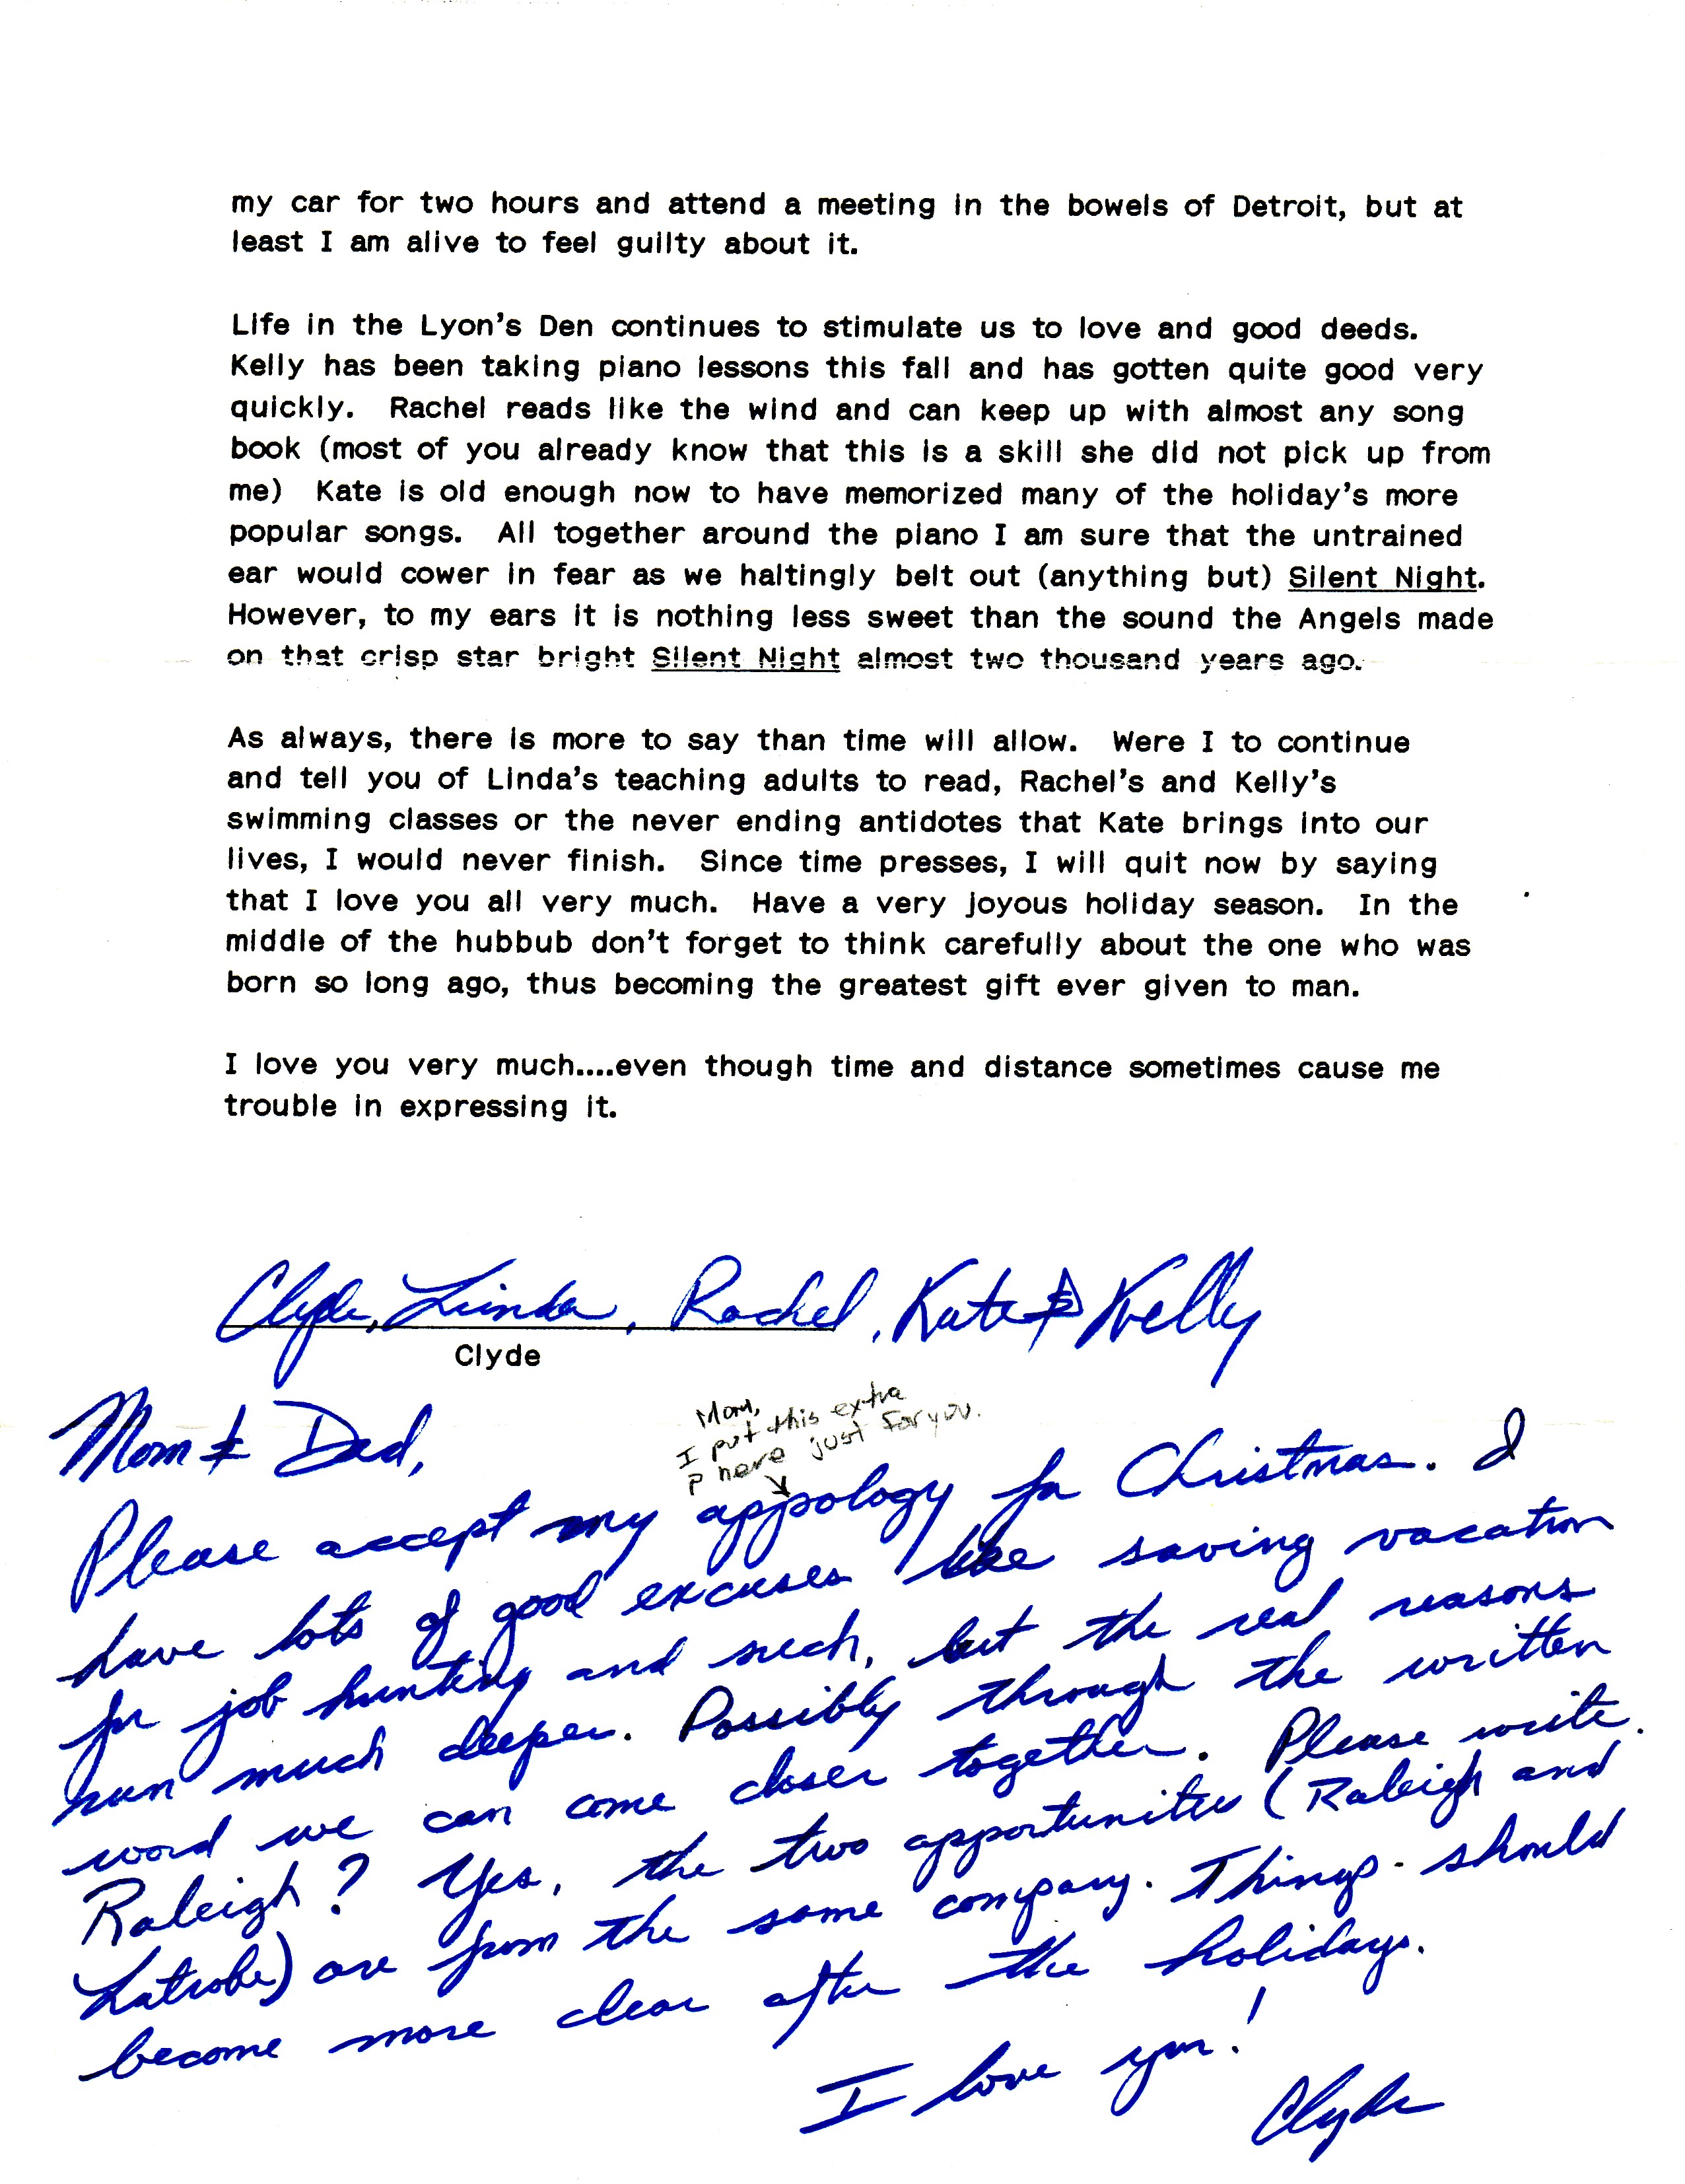 my car for two hours and attend a meeting in the bowels of Detroit, but at
least I am alive to feel guilty about it.
Life in the Lyon's Den continues to stimulate us to love and good deeds.
Kelly has been taking piano lessons this fall and has gotten quite good very
quickly.  Rachel reads like the wind and can keep up with almost any song
book (most of you already know that this is a skill she did not pick up from
me)  Kate is old enough now to have memorized many of the holiday's more
popular songs.  All together around the piano I am sure that the untrained
ear would cower in fear as we haltingly belt out (anything but) Silent Night.
However, to my ears it is nothing less sweet than the sound the Angels made
on that crisp star bright Silent Night almost two thousand years ago.
As always, there is more to say than time will allow.  Were I to continue
and tell you of Linda's teaching adults to read, Rachel's and Kelly's
swimming classes or the never ending antidotes that Kate brings into our
lives, I would never finish.  Since time presses, I will quit now by saying
that I love you all very much.  Have a very joyous holiday season.  In the
middle of the hubbub don't forget to think carefully about the one who was
born so long ago, thus becoming the greatest gift ever given to man.
I love you very much....even though time and distance sometimes cause me
trouble in expressing it.
Clyde, Linda, Rachel, Kate & Kelly
Clyde
Mom & Dad,
Mom,
I put this extra
p here just for you.
Please accept my appology for Christmas. I
have lots of good excuses like saving vacation
for job hunting and such, but the real reasons
run much deeper. Possibly through the written
word we can come closer together. Please write.
Raleigh? Yes, the two opportunities (Raleigh and
Latrobe) are from the same company. Things should
become more clear after the holidays.
I love you!
Clyde